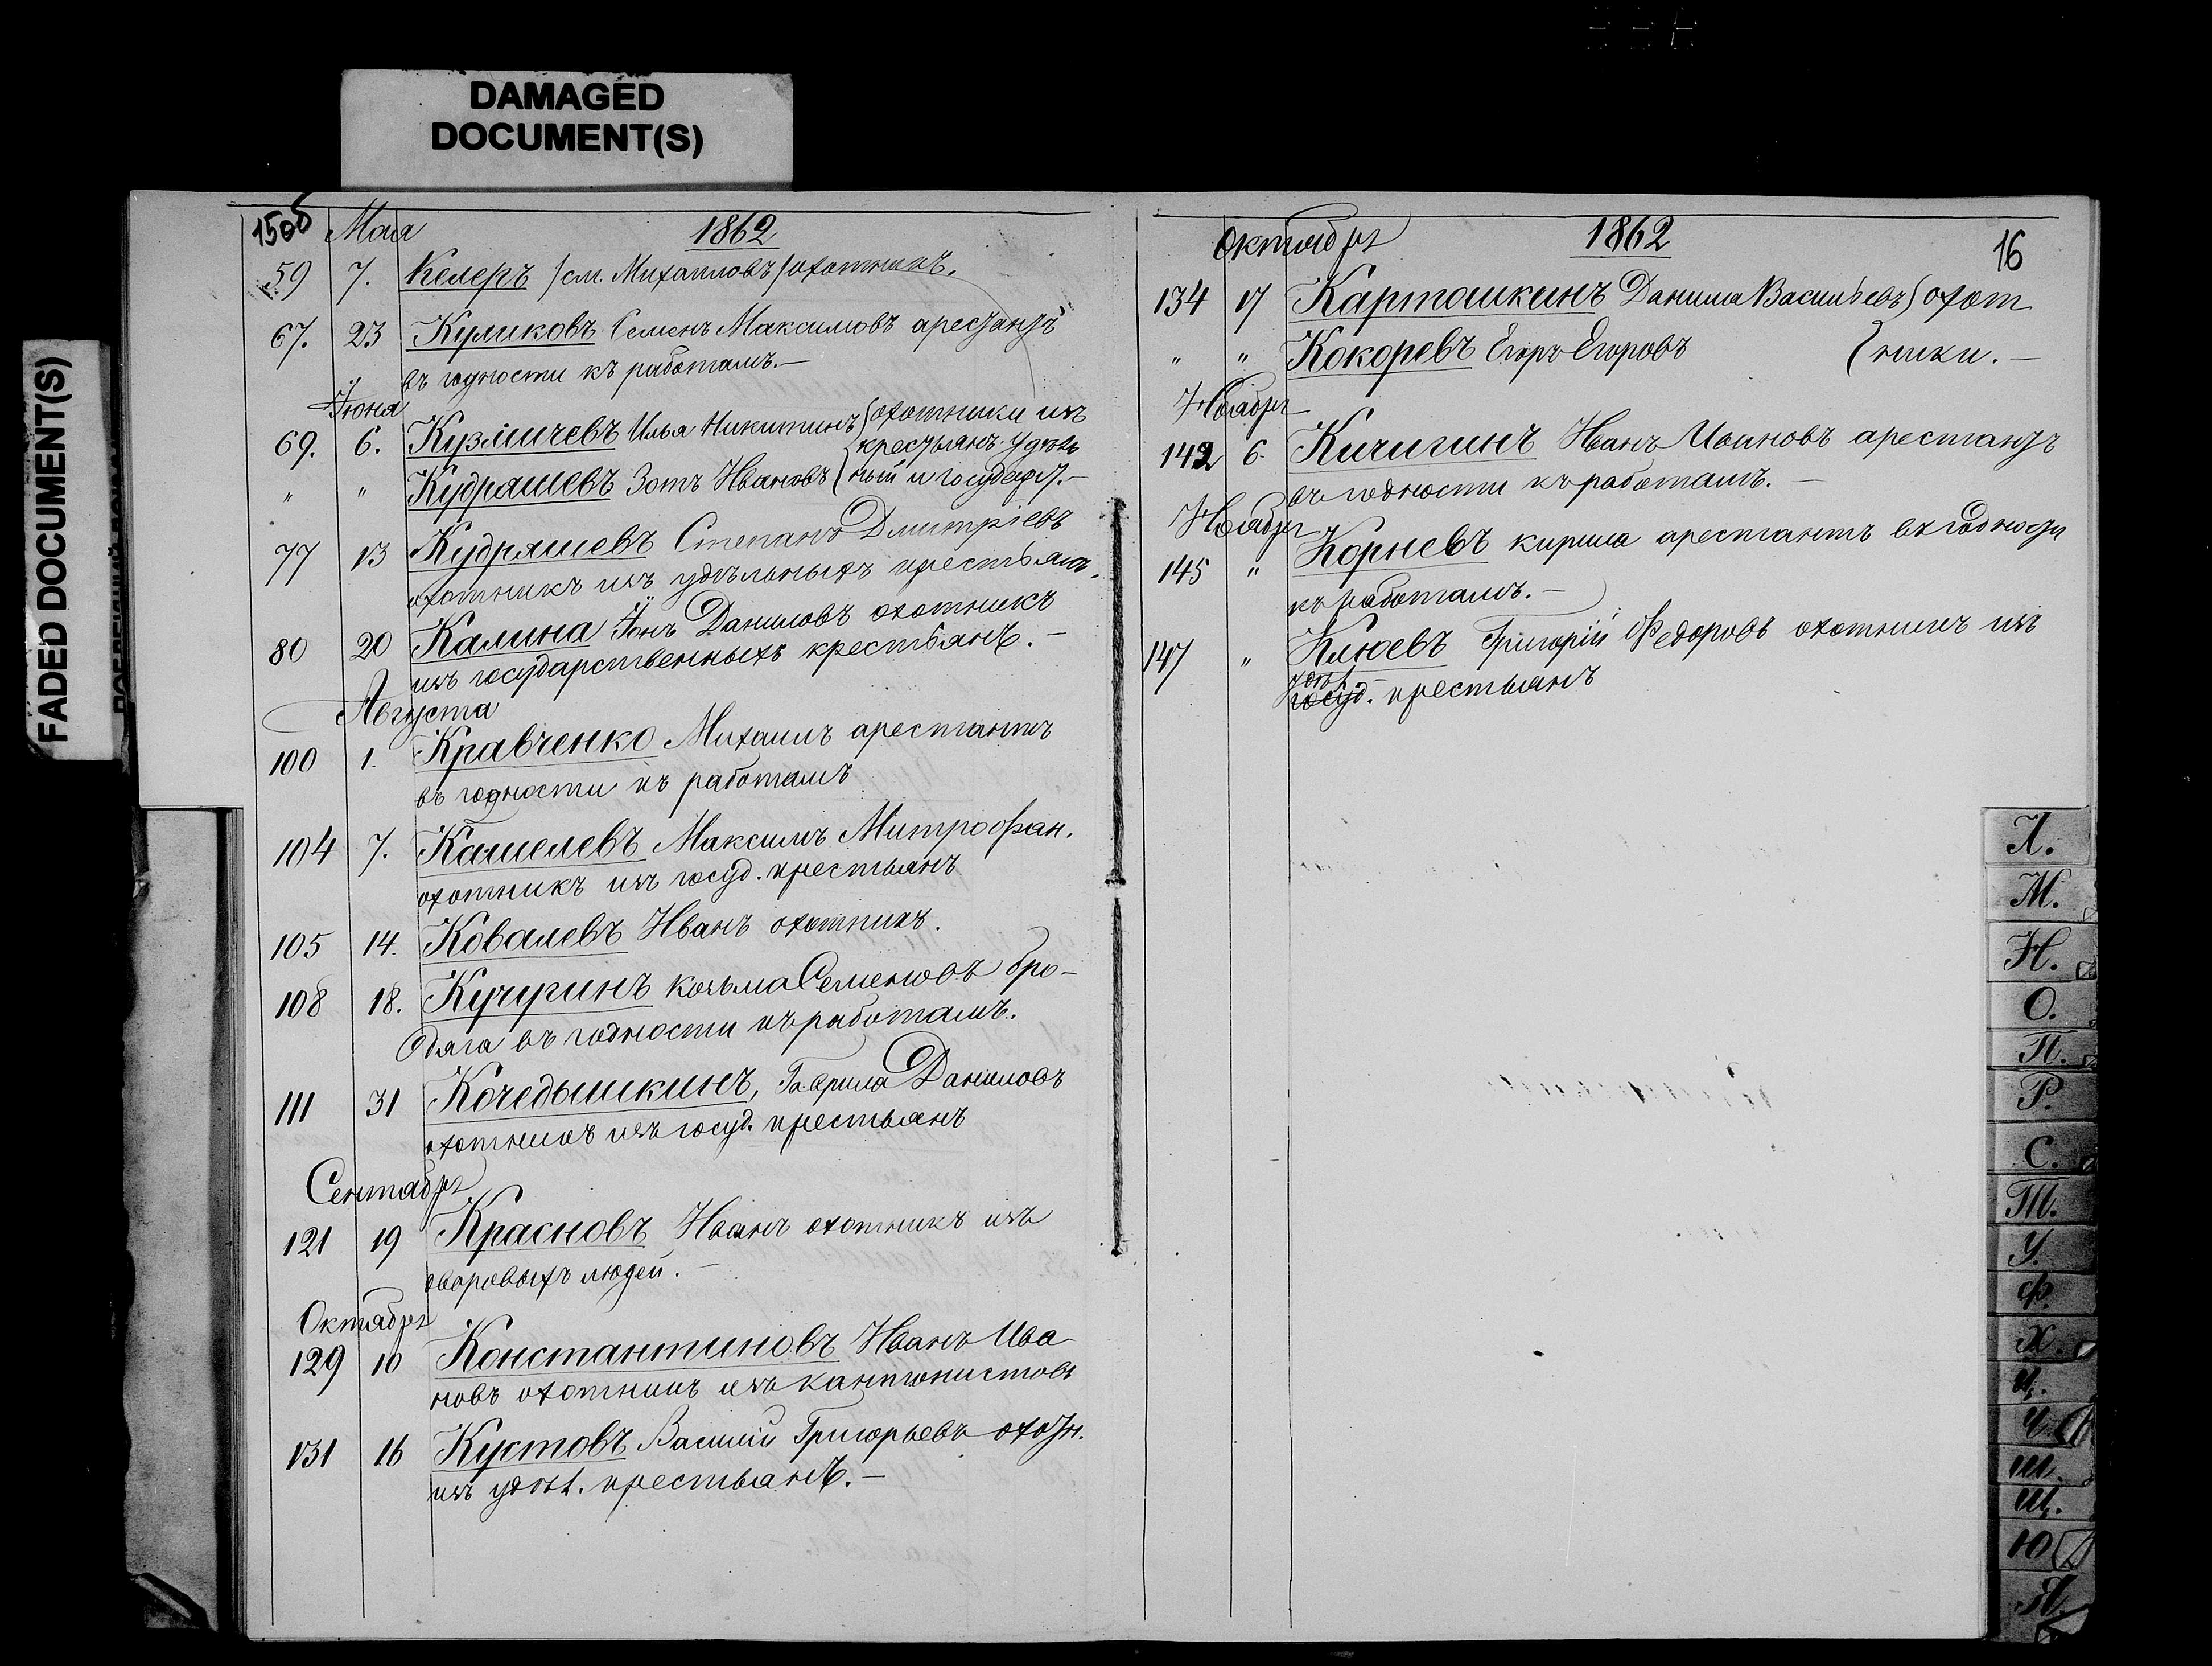 DAMAGED
DOCUMENT(S)
FADED DOCUMENT(S)
15об Мая 1862
59 7. Келеръ /см. Михайловъ/ охотникъ.
67. 23 Куликовъ Семенъ Максимовъ арестантъ
въ годности къ работамъ.—
Іюня
69. 6. Кузмичевъ Илья Никитинъ охотники изъ
крестьянъ удѣль
" " Кудрашевъ Зотъ Ивановъ ный и государст.—
77 13 Кудряшевъ Степанъ Дмитріевъ
охотникъ изъ удѣльныхъ крестьянъ.
80 20 Калина Іонъ Даниловъ охотникъ
изъ государственныхъ крестьянъ.—
Августа
100 1. Кравченко Михаилъ арестантъ
въ годности къ работамъ
104 7. Кашелевъ Максимъ Митрофан.
охотникъ изъ госуд. крестьянъ
105 14. Ковалевъ Иванъ охотникъ.
108 18. Кучуринъ Козьма Семеновъ бро-
дяга въ годности къ работамъ.
111 31 Кочедышкинъ, Гаврила Даниловъ
охотникъ изъ госуд. крестьянъ
Сентября
121 19 Красновъ Иванъ охотникъ изъ
дворовыхъ людей.—
Октября
129 10 Константиновъ Иванъ Ива-
новъ охотникъ изъ кантонистовъ
131 16 Кустовъ Василій Григорьевъ охотн.
изъ удѣл. крестьянъ.—
Октября 1862 16
134 17 Картошкинъ Данила Васильевъ охот
" " Кокоревъ Егоръ Егоровъ ники.—
Ноября
142 6. Кичигинъ Иванъ Ивановъ арестантъ
въ годности къ работамъ.—
Ноября
145 " Корневъ Кирила арестантъ въ годности
къ работамъ.—
147 " Клюевъ Григорій Федоровъ охотникъ изъ
удѣл.
госуд. крестьянъ
Л.
М.
Н.
О.
П.
Р.
С.
Т.
У.
Ф.
Х.
Ц.
Ч.
Ш.
Щ.
Ю
Я.